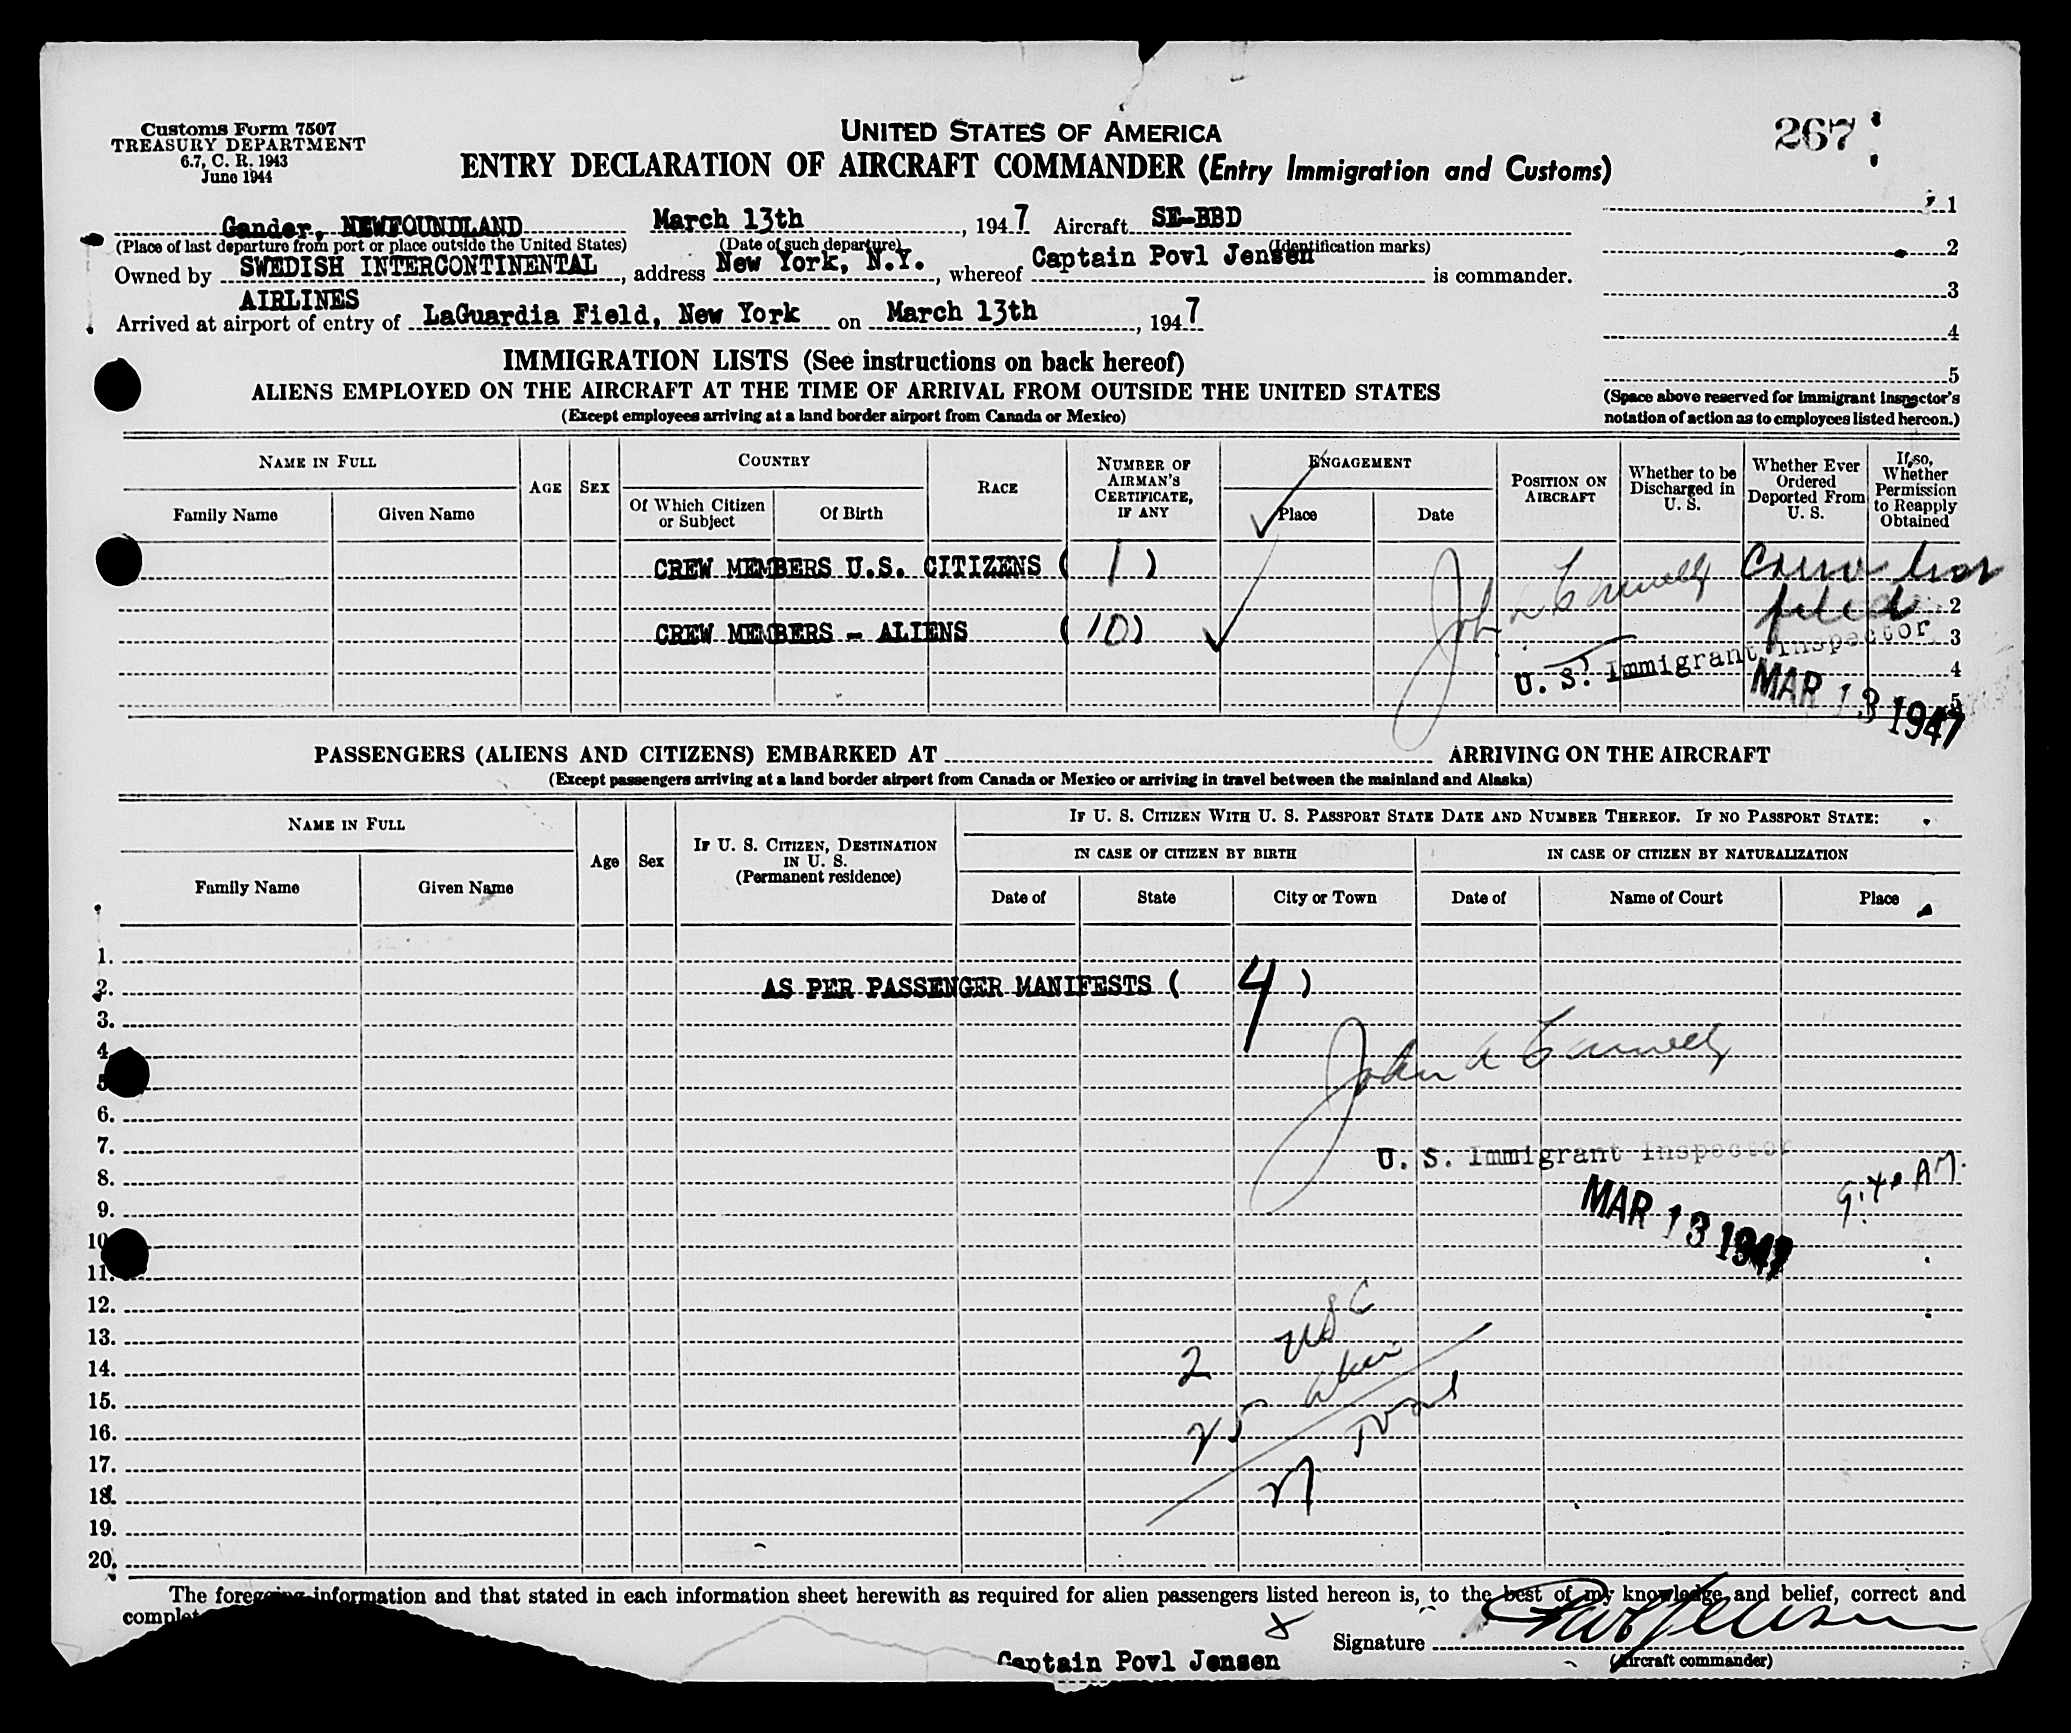 Customs Form 7507
TREASURY DEPARTMENT
6.7, C. R. 1943
June 1944
UNITED STATES OF AMERICA
ENTRY DECLARATION OF AIRCRAFT COMMANDER (Entry Immigration and Customs)
267
Gander, NEWFOUNDLAND March 13th, 1947 Aircraft SE-BBD
(Place of last departure from port or place outside the United States) (Date of such departure) (Identification marks)
Owned by SWEDISH INTERCONTINENTAL, address New York, N.Y., whereof Captain Povl Jensen is commander.
AIRLINES
Arrived at airport of entry of LaGuardia Field, New York on March 13th, 1947
1
2
3
4
5
(Space above reserved for immigrant inspector's
notation of action as to employees listed hereon.)
IMMIGRATION LISTS (See instructions on back hereof)
ALIENS EMPLOYED ON THE AIRCRAFT AT THE TIME OF ARRIVAL FROM OUTSIDE THE UNITED STATES
(Except employees arriving at a land border airport from Canada or Mexico)
NAME IN FULL
Family Name
Given Name
AGE
SEX
COUNTRY
Of Which Citizen
or Subject
Of Birth
RACE
NUMBER OF
AIRMAN'S
CERTIFICATE,
IF ANY
ENGAGEMENT
Place
Date
POSITION ON
AIRCRAFT
Whether to be
Discharged in
U. S.
Whether Ever
Ordered
Deported From
U. S.
If so,
Whether
Permission
to Reapply
Obtained
CREW MEMBERS U.S. CITIZENS ( 1 )
Crew list
filed
2
CREW MEMBERS - ALIENS ( 10 )
3
U. S. Immigrant Inspector
4
MAR 13 1947
5
PASSENGERS (ALIENS AND CITIZENS) EMBARKED AT ARRIVING ON THE AIRCRAFT
(Except passengers arriving at a land border airport from Canada or Mexico or arriving in travel between the mainland and Alaska)
NAME IN FULL
Family Name
Given Name
Age
Sex
IF U. S. CITIZEN, DESTINATION
IN U. S.
(Permanent residence)
IF U. S. CITIZEN WITH U. S. PASSPORT STATE DATE AND NUMBER THEREOF. IF NO PASSPORT STATE:
IN CASE OF CITIZEN BY BIRTH
IN CASE OF CITIZEN BY NATURALIZATION
Date of
State
City or Town
Date of
Name of Court
Place
1.
2. AS PER PASSENGER MANIFESTS ( 4 )
3.
4.
5
6.
7.
U. S. Immigrant Inspector
8.
9.
MAR 13 1947
10
11.
12.
13.
2 USC
14.
15.
25 alien
16.
Total
17.
27
18.
19.
20.
The foregoing information and that stated in each information sheet herewith as required for alien passengers listed hereon is, to the best of my knowledge and belief, correct and
Signature Povl Jensen
Captain Povl Jensen
(Aircraft commander)